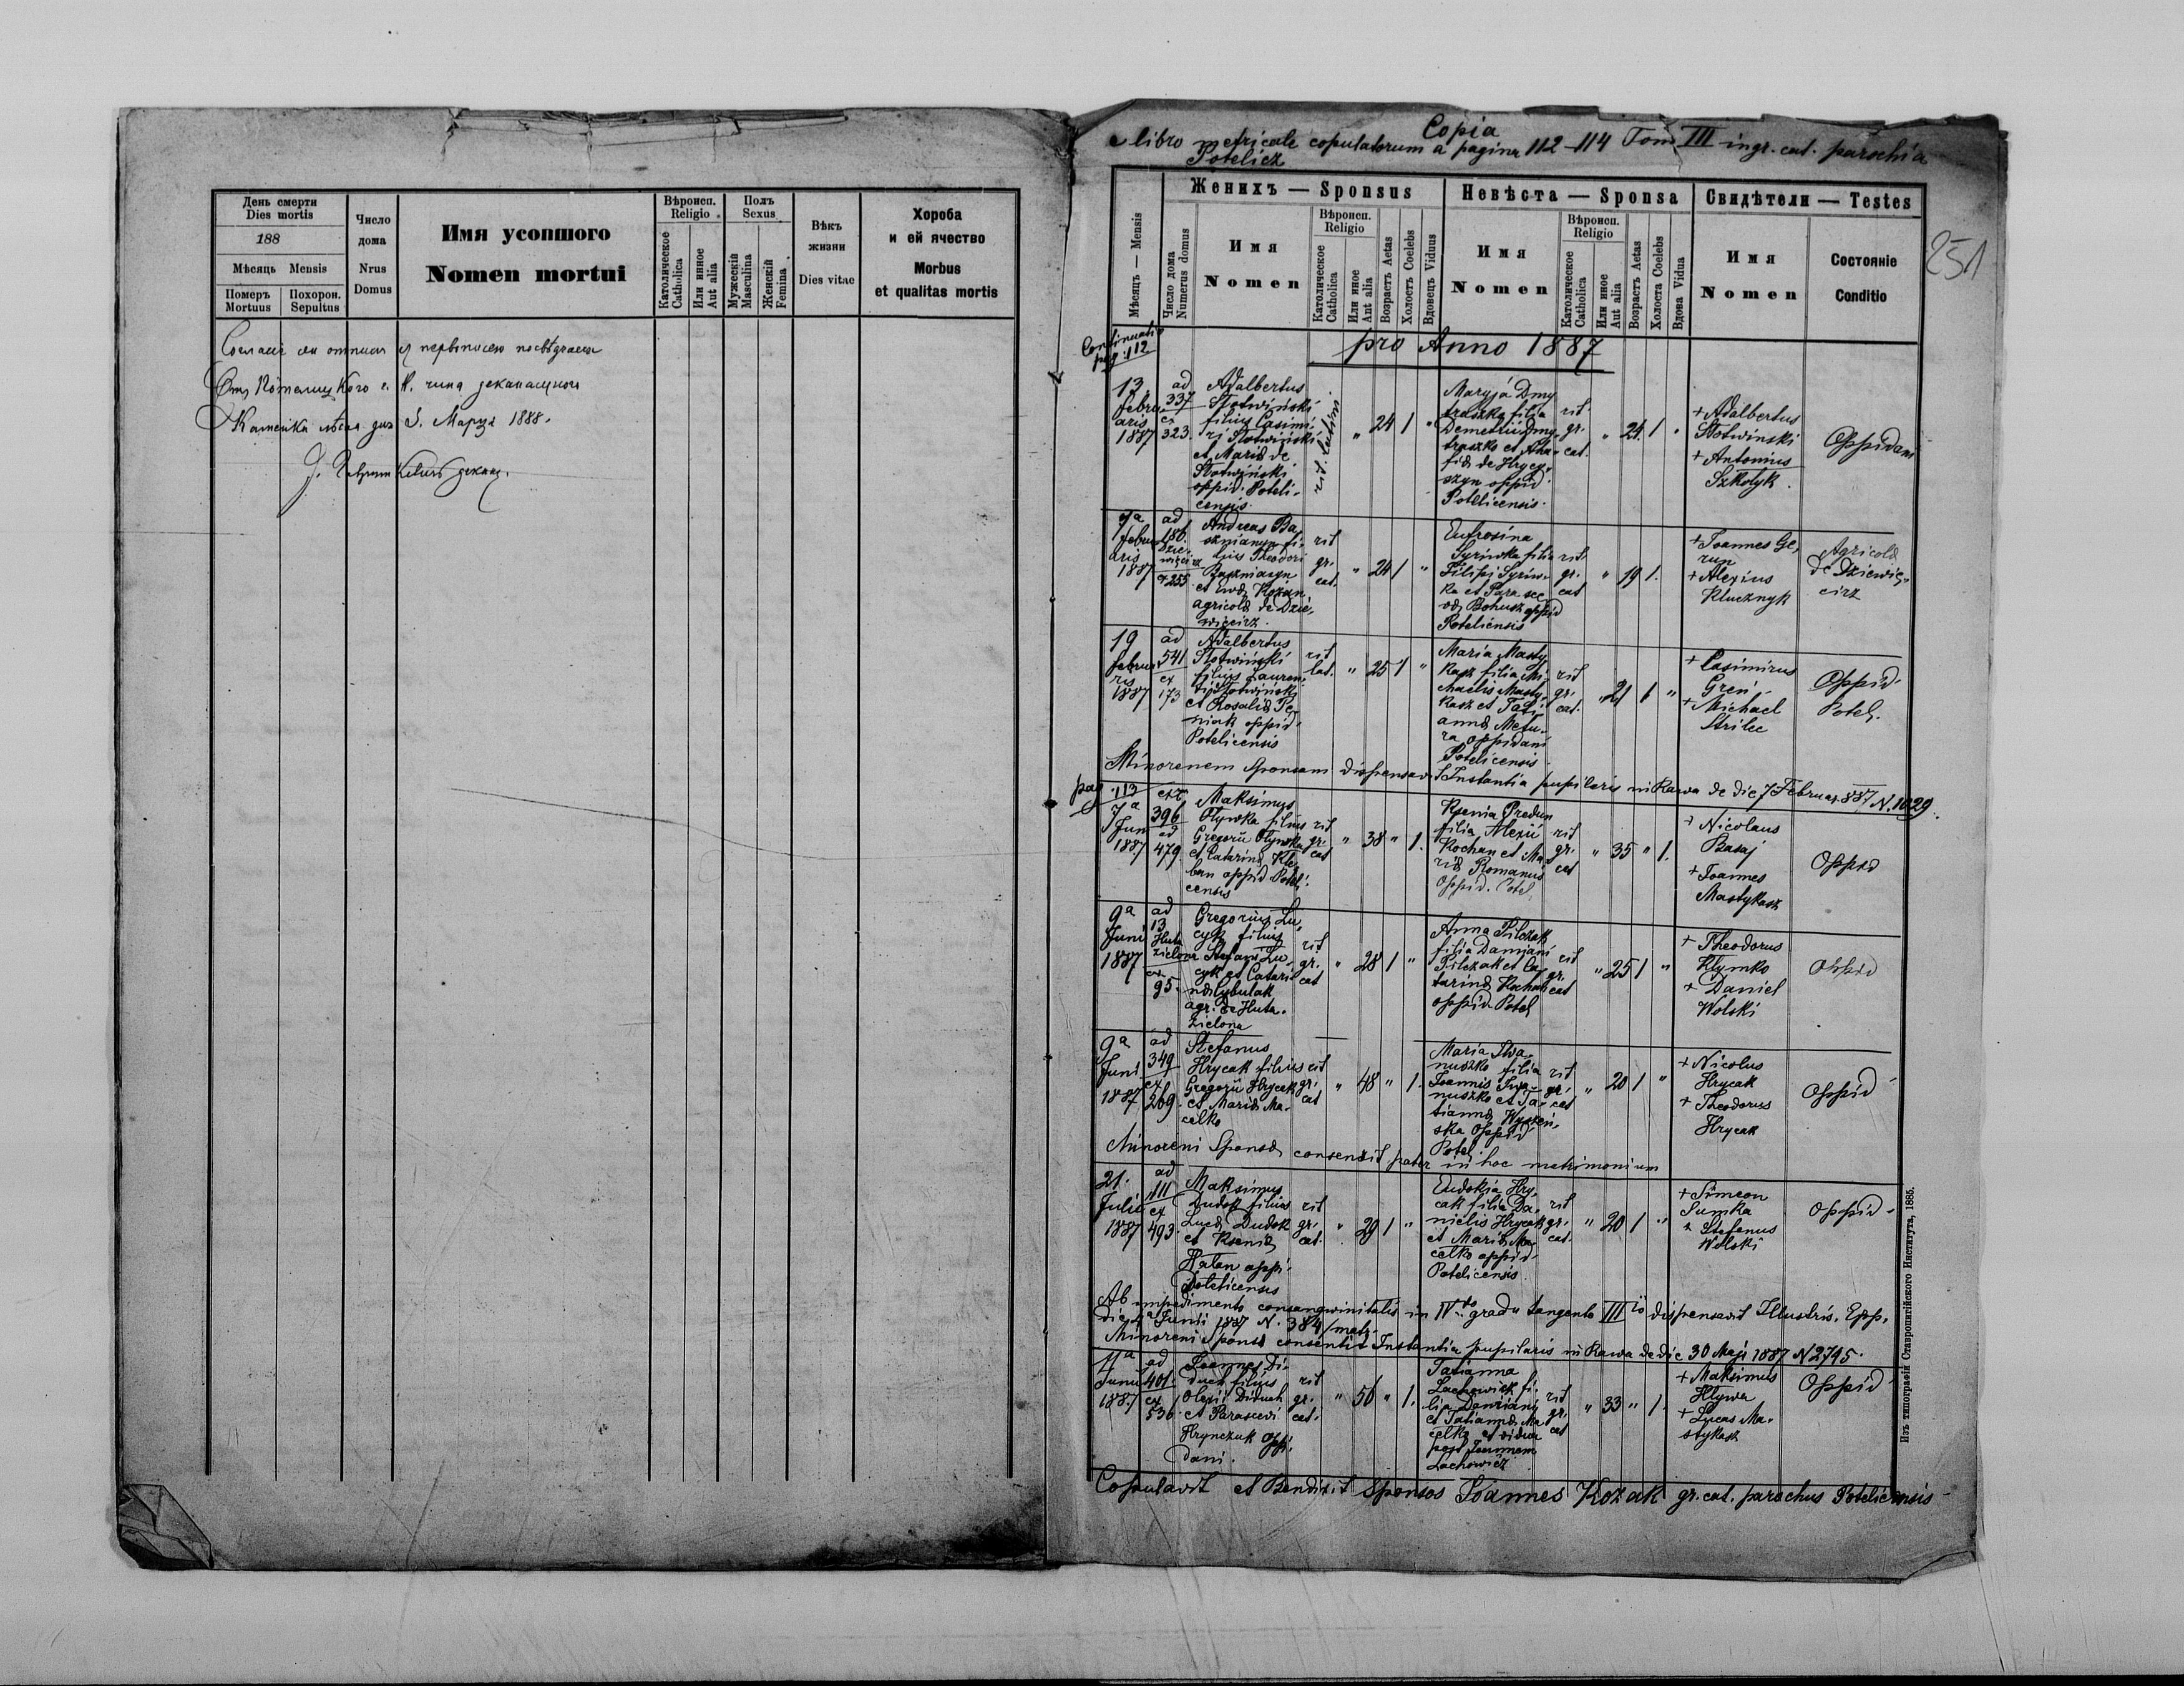 День смерти
Dies mortis
188
Мѣсяць Mensis
Померъ Mortuus
Похорон. Sepultus
Число дома
Nrus Domus
Имя усопшого
Nomen mortui
Вѣроисп.
Religio
Католическое Catholica
Или инное Aut alia
Полъ
Sexus
Мужескій Masculina
Женскій Femina
Вѣкъ жизни
Dies vitae
Хороба
и ей ячество
Morbus
et qualitas mortis
Каменка 3. Марта 1888.
Copia
e libro metricale copulatorum a pagina 112–114 Tom III in gr. cat. parochia
Potelicz
251
Мѣсяць — Mensis
Число дома
Numerus domus
Женихъ — Sponsus
Имя
Nomen
Вѣроисп.
Religio
Католическое Catholica
Или иное Aut alia
Возрастъ Aetas
Холостъ Coelebs
Вдовецъ Viduus
Невѣста — Sponsa
Имя
Nomen
Вѣроисп.
Religio
Католическое Catholica
Или иное Aut alia
Возрастъ Aetas
Холоста Coelebs
Вдова Vidua
Свидѣтели — Testes
Имя
Nomen
Состояніе
Conditio
Continuatio
pag. 112
pro Anno 1887
13.
februaris
1887
ad
337
ex
323.
Adalbertus
Stotwiński
filius Casimi-
ri Stotwiński
et Mariæ de
Stotwiński
oppid. Poteli-
censis
rit. latini.
" 24 1 "
Maryja Dmy
traszko filia
Demetrii Dmy
traszko et Aha-
fiæ de Hrycy-
szyn oppid.
Potelicensis
rit.
gr.
cat.
" 24. 1 "
+ Adalbertus
Stotwinski
+ Antonius
Szkolyk.
Oppidani
7a
februaris
1887
ad
186.
Dzie-
więcirz
ex 255
Andreas Ba
sznianyn fi-
lius Theodori
Basznianyn
et Evdæ Kozan
agricolæ de Dzie-
więcirz.
rit
gr.
cat.
" 24 1 "
Eufrosina
Syriwka filia
Filipi Syriw-
ka et Para sce
væ Bohusz oppid
Potelicensis
rit.
gr.
cat
" 19 1.
+ Joannes Ge-
run
+ Alexius
Klucznyk
Agricolæ
de Dziewię-
cirz
19
februaris
1887
ad
541
ex
173
Adalbertus
Stotwiński
filius Lauren-
ti Stotwiński
et Rosaliæ Pe-
niak oppid.
Potelicensis
rit
lat.
" 25 1 "
Maria Masty
kasz filia Mi-
chaelis Masty-
kasz et Tati
annæ Metu-
ra oppidani
Potelicensis
rit
gr.
cat.
" 21 1 "
+ Casimirus
Greń
+ Michael
Strilec
Oppid.
Potel.
Minorenem Sponsam dispensavit Instantia pupilaris in Rawa de die 7 Februar. 887 N. 1029.
pag 113
7a
Jun
1887
ex
396
ad
479.
Maksimus
Olywka filius
Gregorii Olywka
et Catarinæ Kle-
ban oppid Poteli-
censis
rit
gr.
cat
" 38 " 1.
Ksenia Predun
filia Alexii
Kochan et Ma
riæ Romanus
Oppid. Potel
rit
gr.
cat
" 35 " 1.
+ Nicolaus
Basaj
+ Joannes
Mastykasz
Oppid
9a
Juni
1887
ad
13
Huta
zielona
ex.
95.
Gregorius Lu-
cyk filius
Stefani Lu-
cyk et Catari-
næ Cybulak
agr. de Huta-
Zielona
rit
gr.
cat
" 28 1 "
Anna Pilczak
filia Damiani
Pilczak et Ca
tarinæ Kochan
oppid. Potel
rit
gr.
cat
" 25 1 "
+ Theodorus
Klymko
+ Daniel
Wolski
Oppid
9a
Juni
1887
ad
349
ex
269.
Stefanus
Hrycak filius
Gregorii Hrycak
et Mariæ Ma-
celko
rit
gr.
cat
" 48 " 1.
Maria Iwa-
nuszko filia
Joannis Iwa-
nuszko et Ta-
tiannæ Wyszen-
ska Oppid
Potel
rit
gr.
cat
" 20 1 "
+ Nicolus
Hrycak
+ Theodorus
Hrycak
Oppid
Minoreni Sponsæ consensit pater in hoc matrimonium
21.
Julii
1887
ad
111
ex
493.
Maksimus
Dudok filius
Lucæ Dudok
et Kseniæ
Hatan oppi.
Potelicensis
rit
gr.
cat.
" 29 1 "
Eudokia Hry-
cak filia Da-
nielis Hrycak
et Mariæ Ma-
celko oppid.
Potelicensis.
rit
gr.
cat.
" 20 1 "
+ Simeon
Sumka
+ Stefanus
Wolski
Oppid
Ab impedimento consangwinitatis in IVto gradu tangente IIIio dispensavit Illustris. Epp.
die 4a Junii 1887 N. 384/metr.
Minoreni Sponsæ consentit Instantia pupilaris in Rawa de die 30 Maji 1887 N 2795.
11a
Junii
1887
ad
401.
ex
536
Joannes Di-
duch filius
Olexii Diduch
et Parascevi
Hrynczuk Oppi
dani.
rit
gr.
cat.
" 56 " 1.
Tatianna
Lachowicz fi-
lia Damiany
et Tatiannæ Ma
celko et vidua
post Joannem
Lachowicz
rit
gr.
cat
" 33 " 1.
+ Maksimus
Hlywa
+ Lucas Ma-
stykasz
Oppid
Copulavit et Bendixit Sponsos Joannes Kozak gr. cat. parochus Potelicensis
Изъ типографіи Ставропигійского Института, 1885.